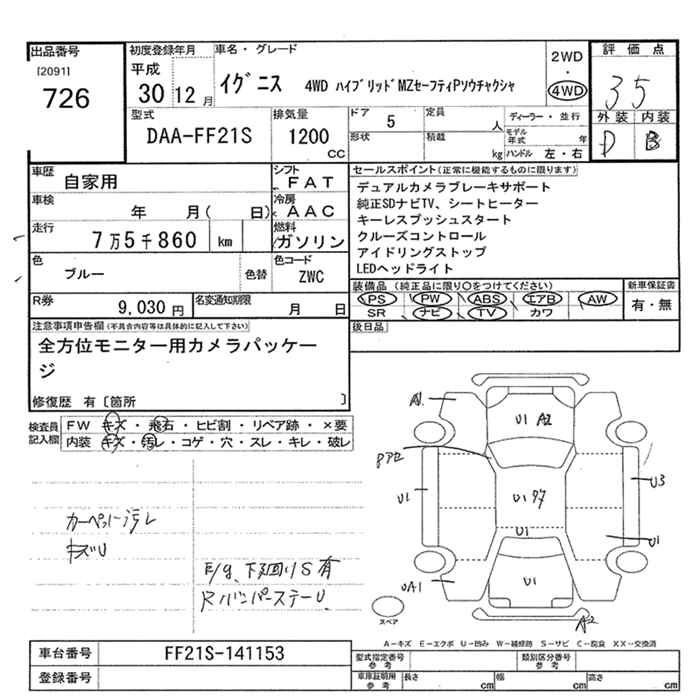 出品番号
[2091]
726
初度登録年月
平成
30 12月
車名・グレード
イグニス 4WD ハイブリッドMZセーフティPソウチャクシャ
2WD
・
4WD
評価点
3.5
外装 内装
D B
型式
DAA-FF21S
排気量
1200
CC
ドア
5
定員
人
形状
積載
kg
ディーラー・並行
モデル年式 年
ハンドル 左・右
車歴
自家用
シフト
FAT
車検
年 月( 日)
冷房
AAC
走行
7万5千860 km
燃料
ガソリン
色
ブルー
色替
色コード
ZWC
R券
9,030円
名変通知期限
月 日
セールスポイント(正常に機能するものに限ります)
デュアルカメラブレーキサポート
純正SDナビTV、シートヒーター
キーレスプッシュスタート
クルーズコントロール
アイドリングストップ
LEDヘッドライト
装備品 (純正品に限り○をつけてください)
PS PW ABS エアB AW
SR ナビ TV カワ
新車保証書
有・無
後日品
注意事項申告欄(不具合内容等は具体的に記入して下さい)
全方位モニター用カメラパッケー
ジ
修復歴 有〔箇所 〕
検査員
記入欄
FW キズ・飛石・ヒビ割・リペア跡・×要
内装 キズ・汚レ・コゲ・穴・スレ・キレ・破レ
カーペット汚レ
キズU
E/g、下回りS有
RバンパーステーU
A1
U1 A2
U1
U3
U1
U1
U1
UA1
A2
スペア
A-キズ E-エクボ U-凹み W-補修跡 S-サビ C-腐食 XX-交換済
車台番号
FF21S-141153
登録番号
型式指定番号
参考
類別区分番号
参考
車庫証明用
参考
長さ cm
幅 cm
高さ cm